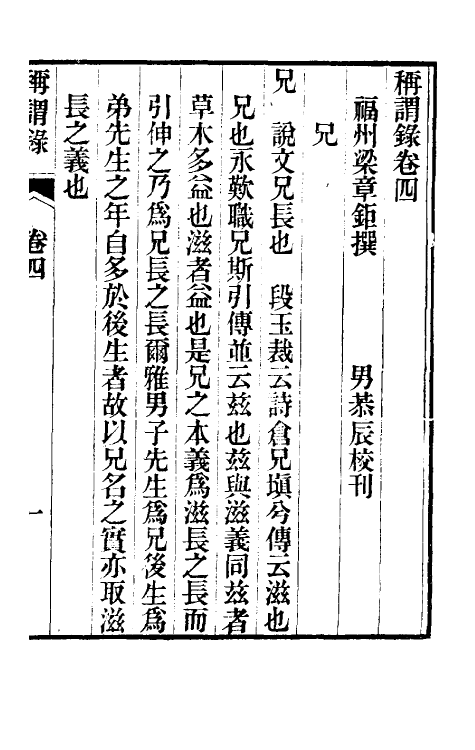 稱謂錄卷四
福州梁章鉅撰　男恭辰校刊
兄
兄　說文兄長也　段玉裁云詩倉兄塡兮傳云滋也
兄也永歎職兄斯引傳並云兹也兹與滋義同兹者
草木多益也滋者益也是兄之本義爲滋長之長而
引伸之乃爲兄長之長爾雅男子先生爲兄後生爲
弟先生之年自多於後生者故以兄名之實亦取滋
長之義也
稱謂錄　卷四　一